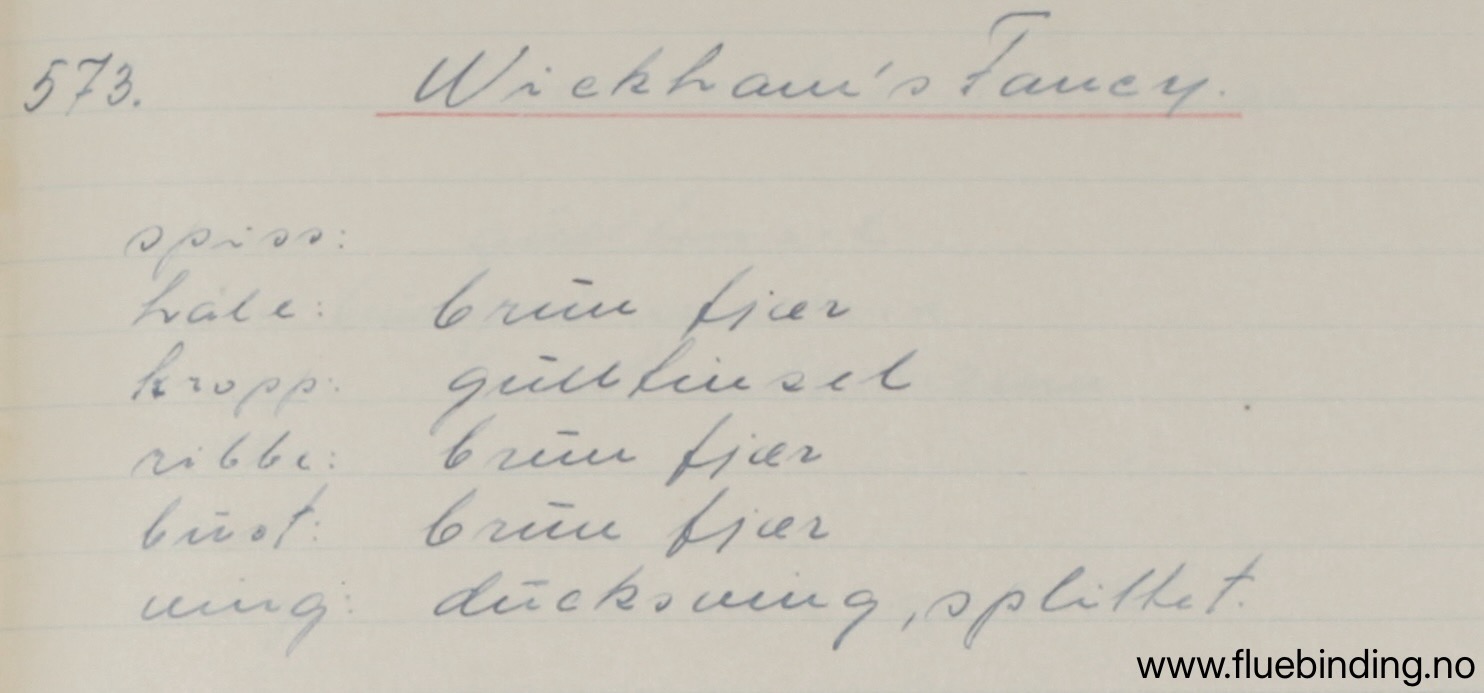 573. Wickham's Fancy.
spiss:
hale: brun fjær
kropp: gulltinsel
ribbe: brun fjær
bust: brun fjær
ving: ducksving, splittet.
www.fluebinding.no